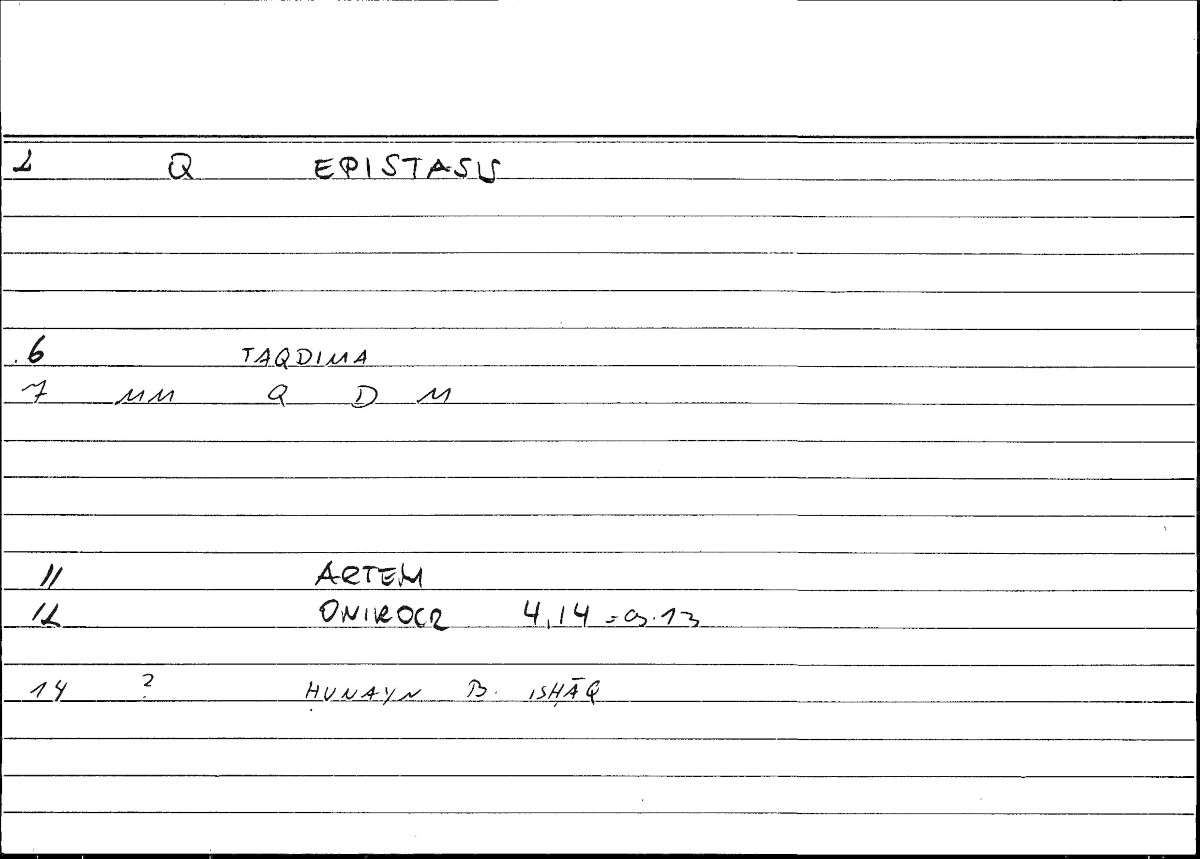 2 Q EPISTASIS
6 TAQDIMA
7 MM Q D M
11 ARTEM
12 ONIROCR 4,14
14 ? ḤUNAYN B. ISḤĀQ